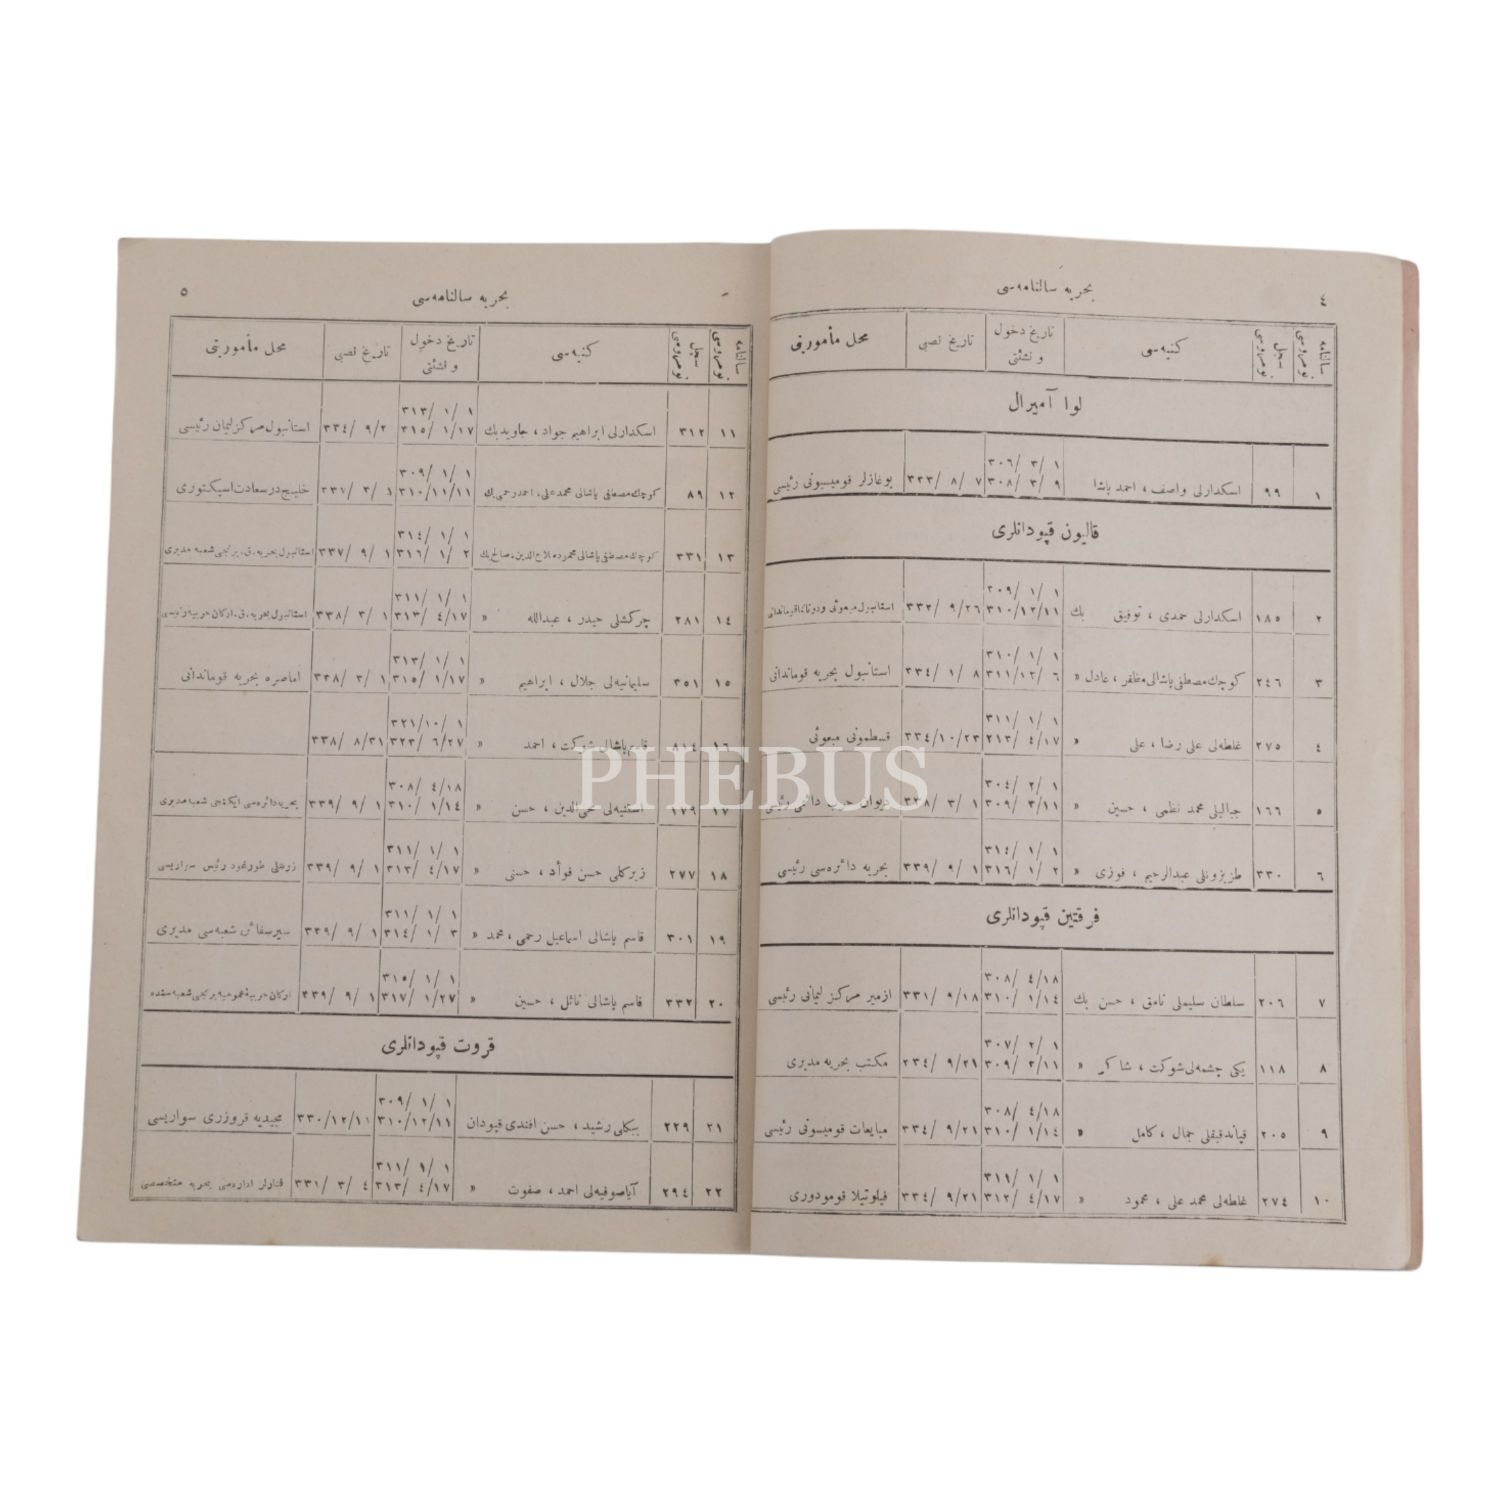 ٤
بحریه سالنامه‌سی
سالنامه نومروسی
سجل نومروسی
كنیه‌سی
تاریخ دخول و نشئتی
تاریخ نصبی
محل مأموریتی
لوا آمیرال
١ ٩٩ اسكدارلی واصف ، احمد پاشا ١ /٣ /٣٠٦ ٩ /٣ /٣٠٨ ٧ /٨ /٣٣٣ بوغازلر قومیسیونی رئیسی
قالیون قپودانلری
٢ ١٨٥ اسكدارلی حمدی ، توفیق بك ١ /١ /٣٠٩ ١١/١٢/٣١٠ ٢٦/٩ /٣٣٢
٣ ٢٤٦ كوچك مصطفی پاشالی مظفر ، عادل » ١ /١ /٣١٠ ٦ /١٢/٣١١ ٨ /١ /٣٣٤ استانبول بحریه قوماندانی
٤ ٢٧٥ غلطه‌لی علی رضا ، علی » ١ /١ /٣١١ ١٧/٤ /٣١٣ ٢٣/١٠/٣٣٤ قسطمونی مبعوثی
٥ ١٦٦ جبالیلی محمد نظمی ، حسین » ١ /٢ /٣٠٤ ١١/٣ /٣٠٩ ١ /٣ /٣٣٨ دیوان حرب دائمی رئیسی
٦ ٣٣٠ طربزونلی عبدالرحیم ، فوزی » ١ /١ /٣١٤ ٢ /١ /٣١٦ ١ /٩ /٣٣٩ بحریه دائره‌سی رئیسی
فرقتین قپودانلری
٧ ٢٠٦ سلطان سلیملی نامق ، حسن بك ١٨/٤ /٣٠٨ ١٤/١ /٣١٠ ١٨/٩ /٣٣١ ازمیر مركز لیمانی رئیسی
٨ ١١٨ یكی چشمه‌لی شوكت ، شاكر » ١ /٢ /٣٠٧ ١١/٢ /٣٠٩ ٢١/٩ /٣٣٤ مكتب بحریه مدیری
٩ ٢٠٥ جمال ، كامل » ١٨/٤ /٣٠٨ ١٤/١ /٣١٠ ٢١/٩ /٣٣٤ مبایعات قومیسونی رئیسی
١٠ ٢٧٤ غلطه‌لی محمد علی ، محمود » ١ /١ /٣١١ ١٧/٤ /٣١٣ ٢١/٩ /٣٣٤ فیلوتیلا قومودوری
٥
بحریه سالنامه‌سی
سالنامه نومروسی
سجل نومروسی
كنیه‌سی
تاریخ دخول و نشئتی
تاریخ نصبی
محل مأموریتی
١١ ٣١٢ اسكدارلی ابراهیم جواد ، جاوید بك ١ /١ /٣١٣ ١٧/١ /٣١٥ ٢ /٩ /٣٣٤ استانبول مركز لیمان رئیسی
١٢ ٨٩ كوچك مصطفی پاشالی محمد علی ، احمد رحمی بك ١ /١ /٣٠٩ ١١/١١/٣١٠ ١ /٣ /٣٣١ خلیج درسعادت اسپكتوری
١٣ ٣٣١ كوچك مصطفی پاشالی صالح بك ١ /١ /٣١٤ ٢ /١ /٣١٦ ١ /٩ /٣٣٧ استانبول بحریه ق. برنجی شعبه مدیری
١٤ ٢٨١ چركشلی حیدر ، عبدالله » ١ /١ /٣١١ ١٧/٤ /٣١٣ ١ /٣ /٣٣٨ استانبول بحریه ق. اركان حربیه رئیسی
١٥ ٣٥١ سلیمانیه‌لی جلال ، ابراهیم » ١ /١ /٣١٣ ١٧/١ /٣١٥ ١ /٣ /٣٣٨ اماصره بحریه قوماندانی
١٦ ٨١٤ قاسم پاشالی شوكت ، احمد » ١ /١٠/٣٢١ ٢٧/٦ /٣٢٣ ٣١/٨ /٣٣٨
١٧ ١٧٩ محی‌الدین ، حسن » ١٨/٤ /٣٠٨ ١٤/١ /٣١٠ ١ /٩ /٣٣٩ بحریه دائره‌سی ایكنجی شعبه مدیری
١٨ ٢٧٧ حسن فوأد ، حسنی » ١ /١ /٣١١ ١٧/٤ /٣١٣ ١ /٩ /٣٣٩
١٩ ٣٠١ قاسم پاشالی اسماعیل رحمی ، محمد » ١ /١ /٣١١ ٣ /١ /٣١٤ ١ /٩ /٣٣٩ سیر سفائن شعبه‌سی مدیری
٢٠ ٣٣٢ قاسم پاشالی نائل ، حسین » ١ /١ /٣١٥ ٢٧/١ /٣١٧ ١ /٩ /٣٣٩
قروت قپودانلری
٢١ ٢٢٩ بیكلی رشید ، حسن افندی قپودان ١ /١ /٣٠٩ ١١/١٢/٣١٠ ١١/١٢/٣٣٠ مجیدیه قروزری سواریسی
٢٢ ٢٩٤ آیاصوفیه‌لی احمد ، صفوت » ١ /١ /٣١١ ١٧/٤ /٣١٣ ٤ /٣ /٣٣١ فنارلر اداره‌سی بحریه متخصصی
PHEBUS